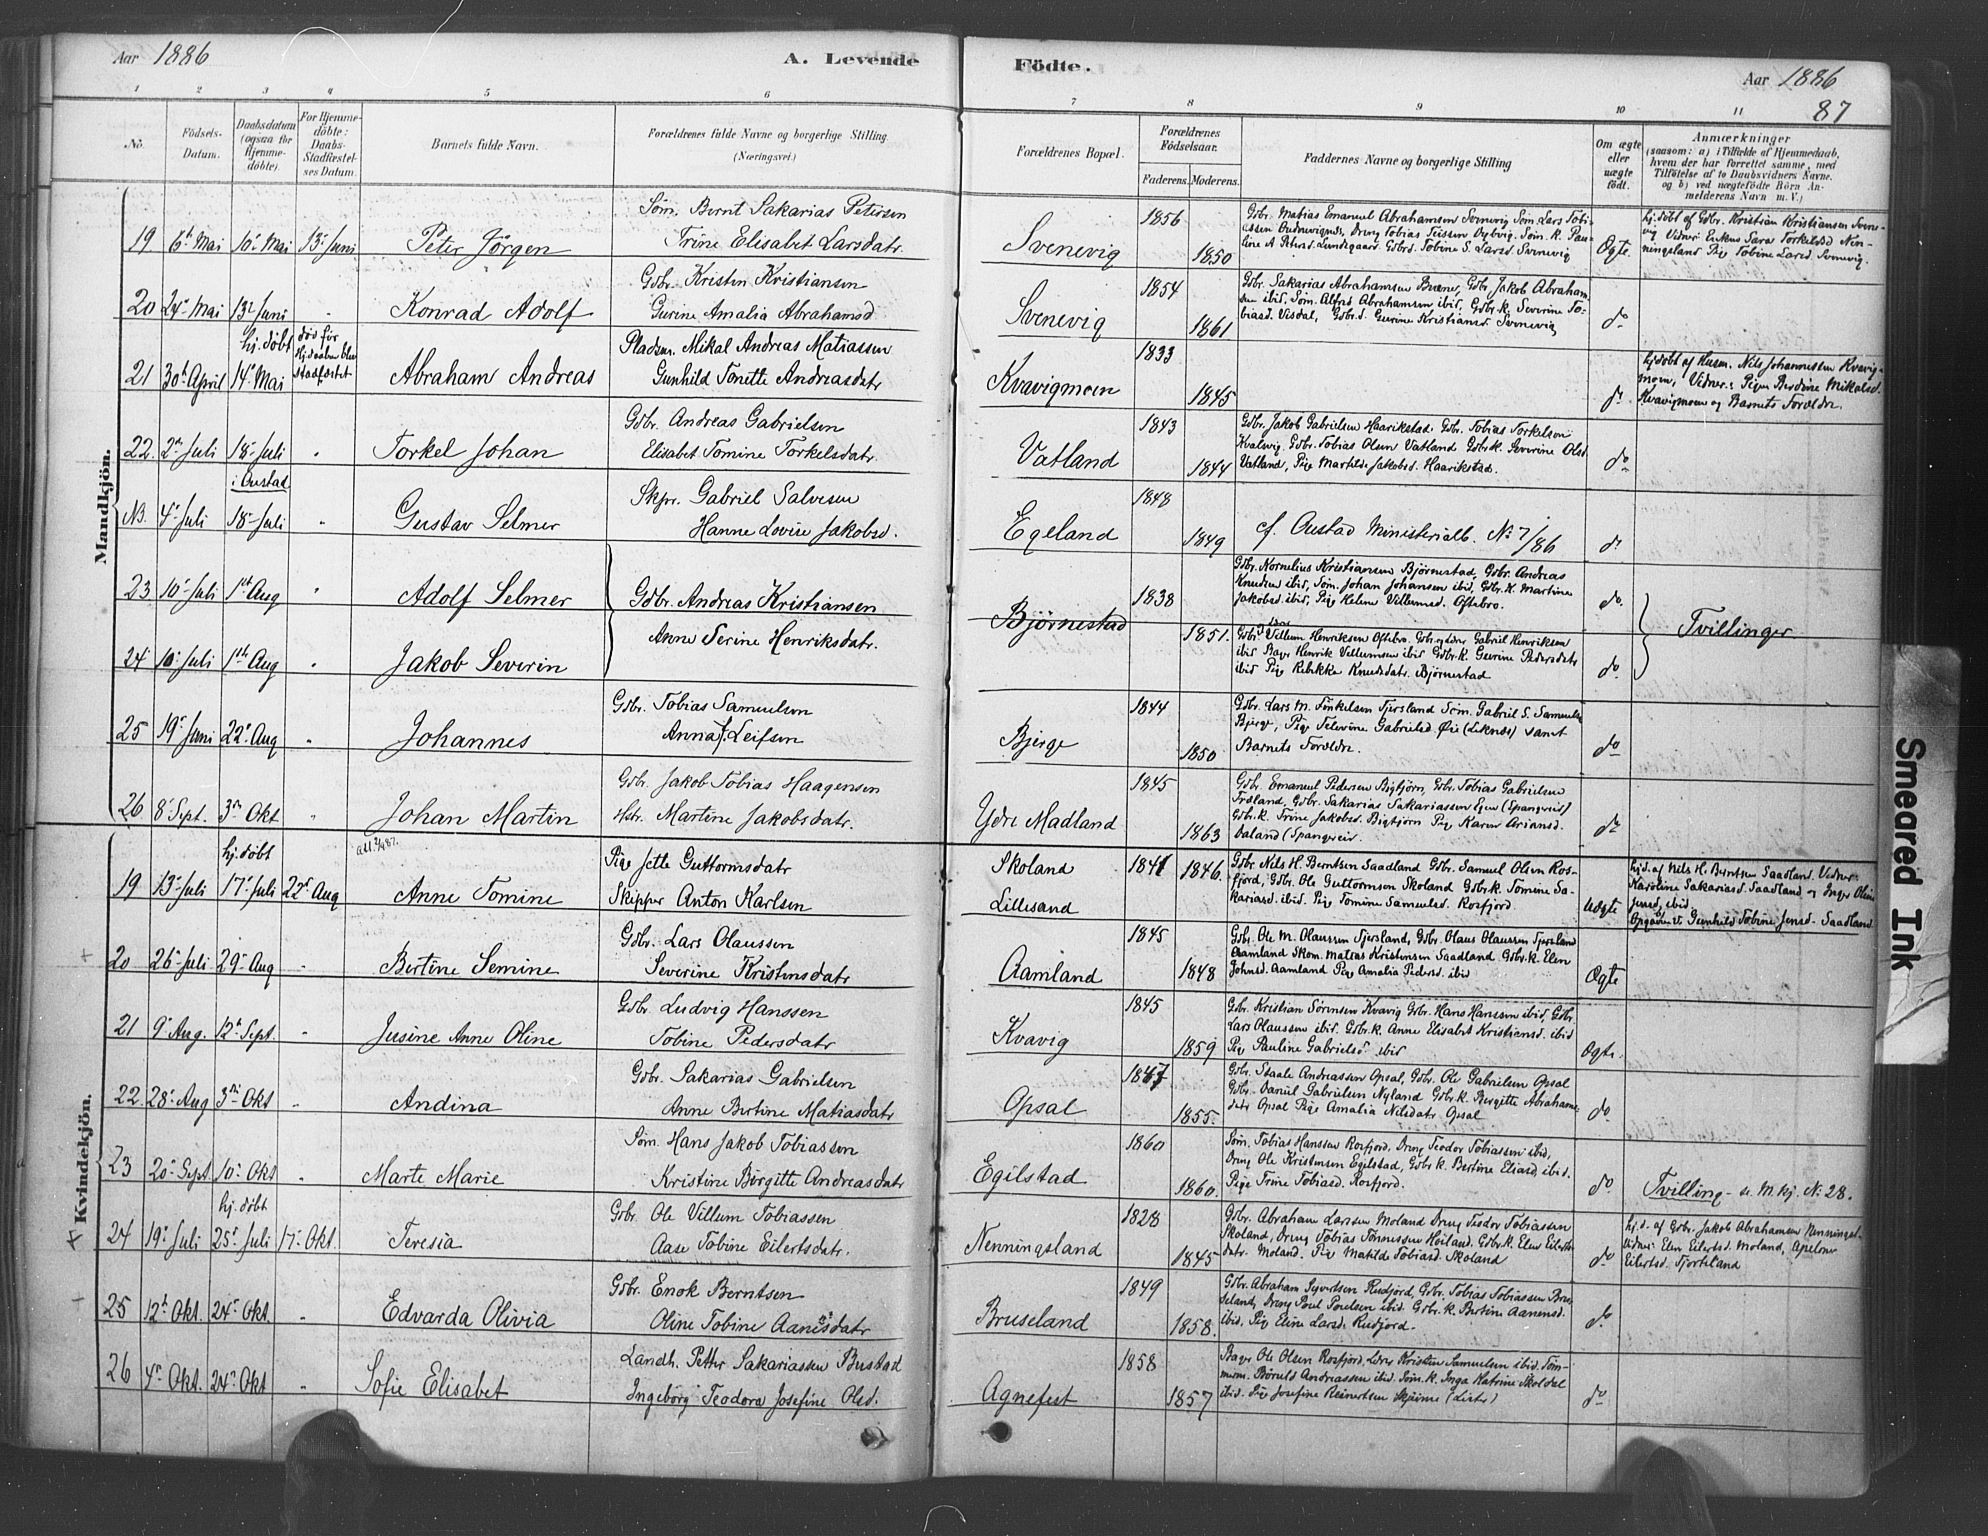 Aar 1886
A. Levende
Födte.
Aar 1886
87
1 2 3 4 5 6 7 8 9 10 11
No.
Födsels-
Datum.
Daabsdatum
(ogsaa for
Hjemme-
döbte).
For Hjemme-
döbte:
Daabs-
Stadfæstel-
ses Datum.
Barnets fulde Navn.
Forældrenes fulde Navne og borgerlige Stilling
(Næringsvei.)
Forældrenes Bopæl.
Forældrenes
Födselsaar.
Faderens. Moderens.
Faddernes Navne og borgerlige Stilling
Om ægte
eller
uægte
födt.
Anmærkninger
(saasom: a) i Tilfælde af Hjemmedaab,
hvem der har forrettet samme, med
Tilföielse af to Daabsvidners Navne.
og b) ved uægtefödte Börn An-
melderens Navn m. V.)
Mandkjön.
19 6te Mai 10de Mai 13de Juni Peter Jörgen
Søm. Bernt Sakarias Petersen
Trine Elisabet Larsdatr.
Svenevig 1856 1850
Gdbr. Matias Emanuel Abrahamsen Svenevig Søm. Lars Tobi-
Ægte
hj.döbt af Gdbr. Kristian Kristiansen Svene-
vig Vidner: Enkens Sara Torkildsd Nen-
ningsland Pige Tobine Larsd. Svenevig.
20 24de Mai 13de Juni Konrad Adolf
Gdbr. Kristen Kristiansen
Gurine Amalia Abrahamsd
Svenevig 1854 1861
Gdbr. Sakarias Abrahamsen Buene, Gdbr. Jakob Abraham-
sen ibid, Søm. Alfred Abrahamsen ibid, Gdbr.k. Severine To-
biasd. Visdal, Gdbr.d. Gurine Kristiansd. Svenevig
do
21 30te April hj.döbt 14de Mai
död før
hj.daaben blev
stadfæstet
Abraham Andreas
Pladsm. Mikal Andreas Matiassen
Gunhild Tonette Andreasdatr
Kvavigmoen 1833 1845
do
hj.döbt af Husm. Nils Johannessen Kvavig-
moen, Vidner: Pigen Berdine Mikalsd.
Kvavigmoen og Barnets Forældre.
22 2den Juli 18de Juli Torkel Johan
Gdbr. Andreas Gabrielsen
Elisabet Tomine Torkelsdatr
Vatland 1843 1844
Gdbr. Jakob Gabrielsen Haarikstad. Gdbr. Tobias Torkelsen
Kvalvig. Gdbr. Tobias Olsen Vatland Gdbr.k. Severine Olsd
Vatland, Pige Martilde Jakobsd. Haarikstad.
do
NB. 4de Juli i Oustad 18de Juli Gustav Selmer
Skpr. Gabriel Salvesen
Hanne Lovise Jakobsd.
Egeland 1848 1849
cf. Oustad Ministerialb. No 7/86
do
23 10de Juli 1ste Aug Adolf Selmer
Gdbr. Andreas Kristiansen
Anne Serine Henriksdatr.
Bjørnestad 1838 1851.
Gdbr. Kornelius Kristiansen Bjørnestad, Gdbr. Andreas
Knudsen ibid, Søm. Johan Johansen ibid, Gdbr.k. Martine
Jakobsd. ibid, Pige Helene Villumsd. Oftebro.
do.
Tvillinger
24 10de Juli 1ste Aug Jakob Severin
Gdbr. Villum Henriksen Oftebro. Gabriel Henriksen
ibid Bager Henrik Villumsen ibid Gdbr.k. Gurine Pedersdatr
ibid Pige Rebekke Knudsdatr. Bjørnestad
do.
25 19de Juni 22de Aug Johannes
Gdbr. Tobias Samuelsen
Anna f. Leifsen
Bjerge 1844 1850
Gdbr. Lars M. Tønkelsen Tjersland Søm. Gabriel S. Samuels
Bjerge, Pige Televine Gabrielsd. Øie (Liknes) samt
Barnets Forældre.
do
26 8de Sept. 3die Okt Johan Martin
Gdbr. Jakob Tobias Haagensen
Hstr. Martine Jakobsdatr.
Ydre Madland 1845 1863
Gdbr. Emanuel Pedersen Bigtjørn, Gdbr. Tobias Gabrielsen
Træland, Gdbr. Sakarias Sakariassen Egen (Spangreid)
Gdbr.k. Trine Jakobsd. Bigtjörn Pige Karen Ariansd.
do
Kvindekjön.
19 13de Juli hj.döbt 17de Juli 22de Aug Anne Tomine
Pige Jette Guttormsdatr
Skipper Anton Karlsen
Skoland
Lillesand
1841 1846.
Gdbr. Nils H. Berntsen Saadland Gdbr. Samuel Olsen Ros-
fjord, Gdbr. Ole Guttormsen Skoland Gdbr.k. Tomine Sa-
kariasd. ibid. Pige Tomine Samuelsd. Rosfjord.
Uægte
hjd. af Nils H. Berntsen Saadland. Vidner:
Karoline Sakariasd. Saadland og Inger Oline
Jensd. ibid.
Opgivn. v. Gunhild Tobine Jensd. Saadland
20 26de Juli 29de Aug Bertine Semine
Gdbr. Lars Olaussen
Severine Kristensdatr
Aamland 1845 1848
Gdbr. Ole M. Olaussen Tjersland, Gdbr. Olaus Olaussen Tjersland
Aamland Skom. Matias Kristensen Saadland Gdbr.k. Elen
Johnsd. Aamland Pige Amalia Pedersd. ibid
Ægte
21 9de Aug. 12te Sept. Jusine Anne Oline
Gdbr. Ludvig Hanssen
Tobine Pedersdatr
Kvavig 1845 1859
Gdbr. Kristian Sörensen Kvavig Gdbr. Hans Hanssen ibid, Gdbr.
Lars Olaussen ibid. Gdbr.k. Anne Elisabet Kristiansd. ibid
Pige Pauline Gabrielsd. ibid
Ægte.
22 28de Aug 3die Okt Andina
Gdbr. Sakarias Gabrielsen
Anne Bertine Matiasdatr
Opsal 1847 1855.
Gdbr. Staale Andreassen Opsal, Gdbr. Ole Gabrielsen Opsal
Gdbr. Daniel Gabrielsen Nyland Gdbr.k. Birgitte Abrahams-
datr Opsal Pige Amalia Nilsdatr Opsal
do.
23 20de Sept. 10de Okt Marte Marie
Søm. Hans Jakob Tobiassen
Kristine Birgitte Andreasdatr
Egilstad 1860 1860.
Søm. Tobias Hanssen Rosfjord, Dreng Teodor Tobiassen ibid,
Dreng Ole Kristensen Egilstad, Gdbr.k. Bertine Eliasd. ibid.
Pige Trine Tobiasd. Rosfjord.
do
Tvilling - se M.kj. No. 28.
24 19de Juli hj.döbt 25de Juli 17de Okt. Teresia
Gdbr. Ole Villum Tobiassen
Aase Tobine Eilertsdatr.
Nenningsland 1828 1845
Gdbr. Abraham Larssen Moland Dreng Teodor Tobiassen
Skoland, Dreng Tobias Tønnessen Høiland, Gdbr.k. Elen Eilerts-
datr. Moland. Pige Matilde Tobiasd. Skoland
do
hj.d. af Gdbr. Jakob Abrahamsen Nenningsl.
Vidner: Elen Eilertsd. Moland, Apelone
Eilertsd. Fjorteland
25 12te Okt. 24de Okt. Edvarda Olivia
Gdbr. Enok Berntsen
Oline Tobine Aanesdatr
Bruseland 1849 1858.
Gdbr. Abraham Sigvertsen Rudjord, Gdbr. Tobias Tobiassen Bru-
seland, Dreng Poul Poulsen ibid. Gdbr.k. Bertine Aanensd.
ibid. Pige Eline Larsd. Rudjord.
do.
26 4de Okt. 24de Okt Sofie Elisabet
Landh. Petter Sakariassen Bustad
Ingeborg Teodora Josefine Olsd.
Agnefest 1858 1857
Bager Ole Olsen Rosfjord, Kristen Samuelsen ibid. Töm-
merm. Børuld Andreassen ibid. Søm.k. Inga Katrine Skoldal
ibid. Pige Josefine Reinertsen Skjeime (Lister)
do
Smeared Ink